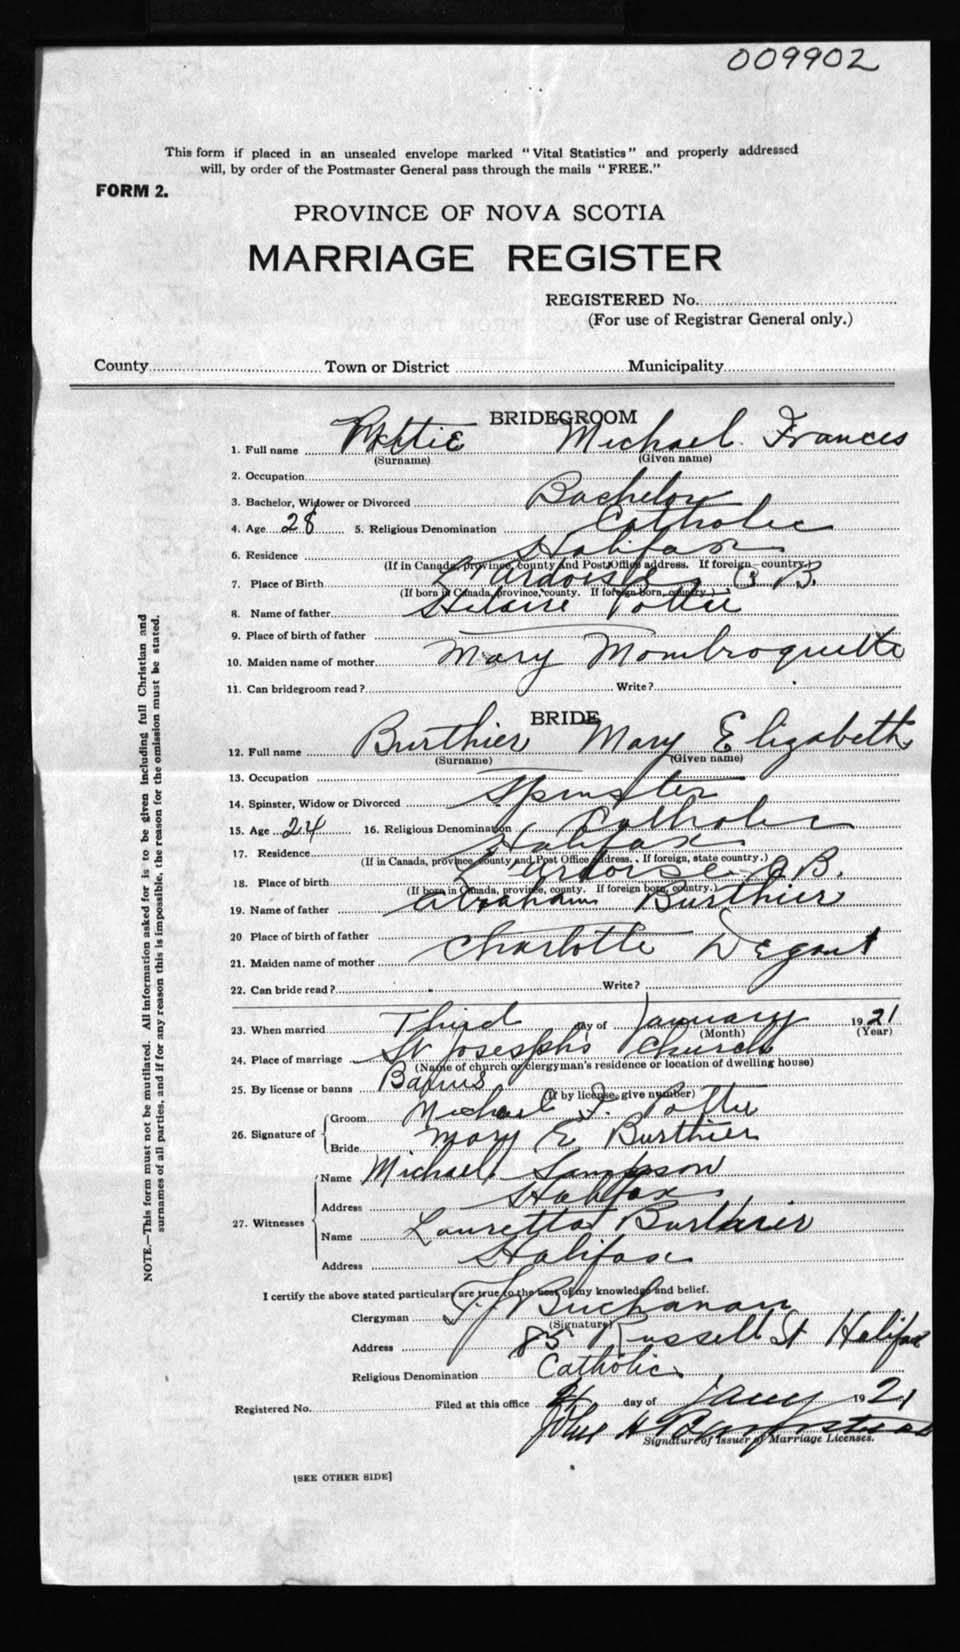 009902
This form if placed in an unsealed envelope marked "Vital Statistics" and properly addressed
will, by order of the Postmaster General pass through the mails "FREE."
FORM 2.
PROVINCE OF NOVA SCOTIA
MARRIAGE REGISTER
REGISTERED No.
(For use of Registrar General only.)
County Town or District Municipality
BRIDEGROOM
1. Full name Pottie Michael Frances
(Surname) (Given name)
2. Occupation
3. Bachelor, Widower or Divorced Bachelor
4. Age 28 5. Religious Denomination Catholic
6. Residence Halifax
(If in Canada, province, county and Post Office address. If foreign country.)
7. Place of Birth L'Ardoise C B.
(If born in Canada, province, county. If foreign born, country.)
8. Name of father Hilaire Pottie
9. Place of birth of father
10. Maiden name of mother Mary Mombroquette
11. Can bridegroom read? Write?
BRIDE
12. Full name Burthier Mary Elizabeth
(Surname) (Given name)
13. Occupation
14. Spinster, Widow or Divorced Spinster
15. Age 24 16. Religious Denomination Catholic
17. Residence Halifax
(If in Canada, province, county and Post Office address. If foreign, state country.)
18. Place of birth L'Ardoise C B.
(If born in Canada, province, county. If foreign born, country.)
19. Name of father Abraham Burthier
20 Place of birth of father
21. Maiden name of mother Charlotte Degout
22. Can bride read? Write?
23. When married Third day of January 1921
(Month) (Year)
24. Place of marriage St Joseph's Church
(Name of church or clergyman's residence or location of dwelling house)
25. By license or banns Banns
(If by license, give number)
26. Signature of Groom Michael F. Pottie
Bride Mary E Burthier
27. Witnesses Name Michael Sampson
Address Halifax
Name Lauretta Burthier
Address Halifax
I certify the above stated particulars are true to the best of my knowledge and belief.
Clergyman T. J Buchanan
(Signature)
Address 85 Russell St Halifax
Religious Denomination Catholic
Registered No. Filed at this office day of Jany 1921
John H
Signature of Issuer of Marriage Licenses.
[SEE OTHER SIDE]
NOTE.—This form must not be mutilated. All information asked for is to be given including full Christian and
surnames of all parties, and if for any reason this is impossible, the reason for the omission must be stated.